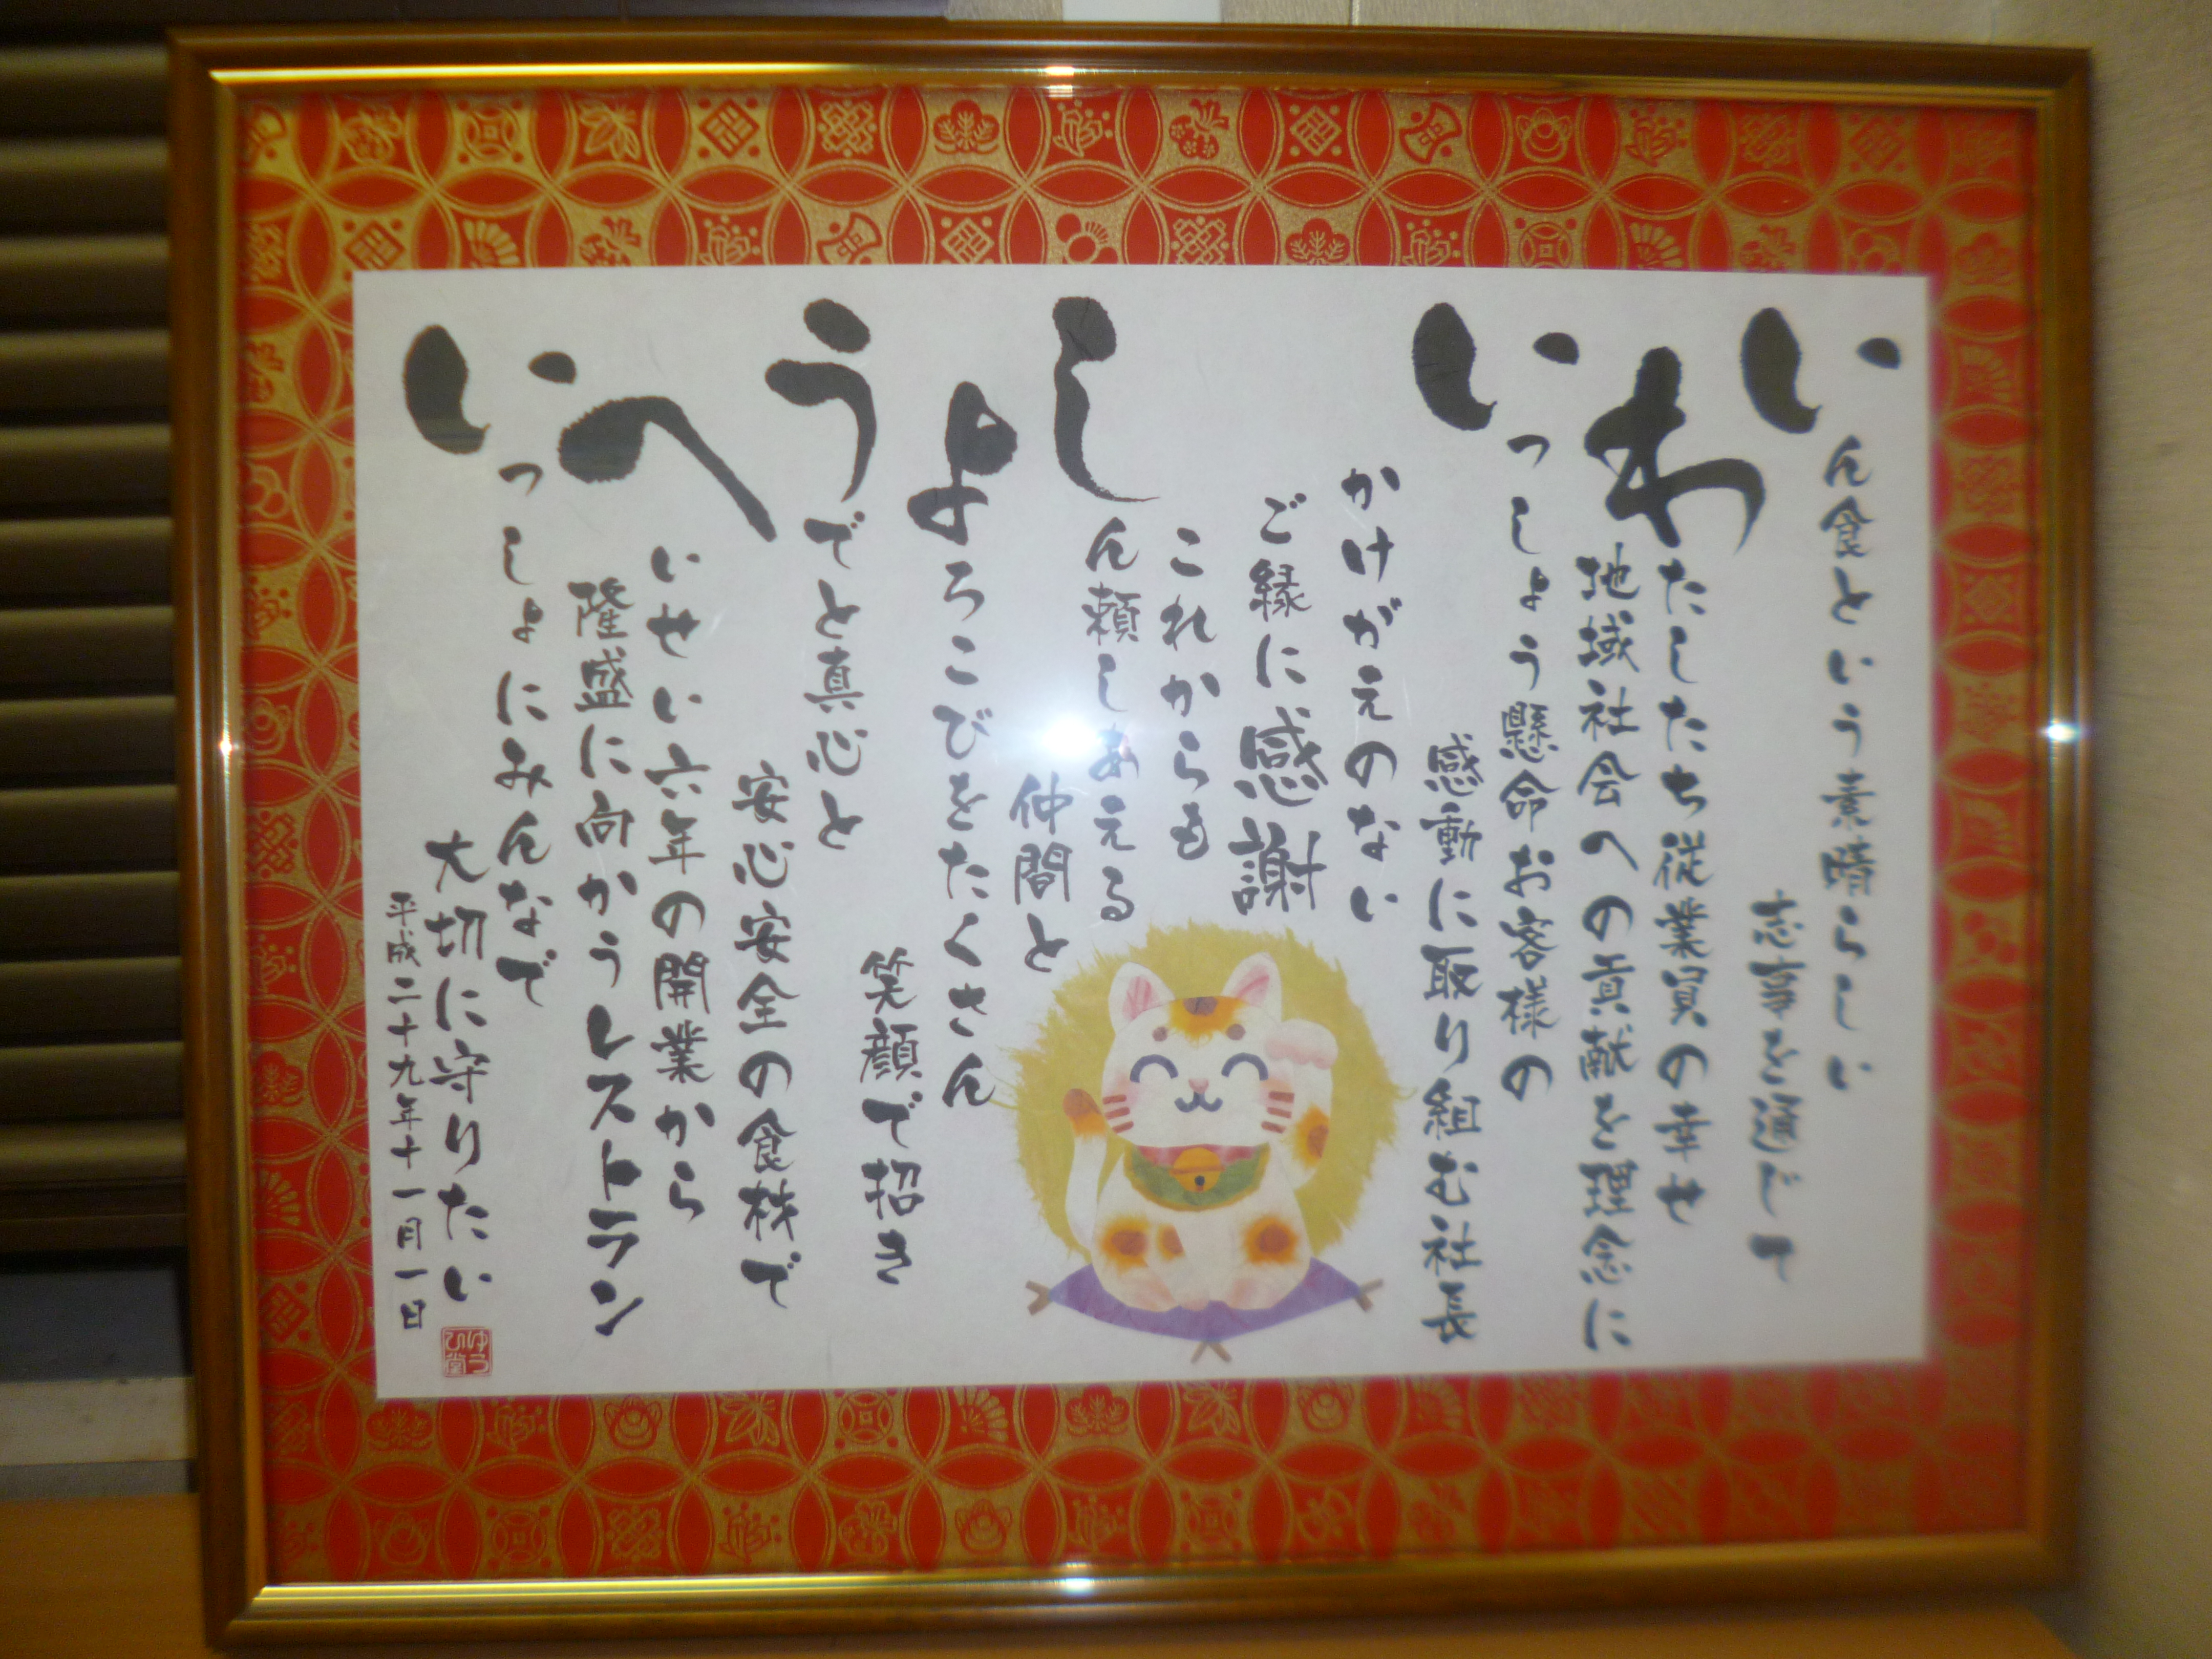 いん食という素晴らしい
志事を通じて
わたしたち従業員の幸せ
地域社会への貢献を理念に
いっしょう懸命お客様の
感動に取り組む社長
かけがえのない
ご縁に感謝
これからも
しん頼しあえる
仲間と
よろこびをたくさん
笑顔で招き
うでと真心と
安心安全の食材で
へいせい六年の開業から
隆盛に向かうレストラン
いっしょにみんなで
大切に守りたい
平成二十九年十一月一日
ゆうひ堂